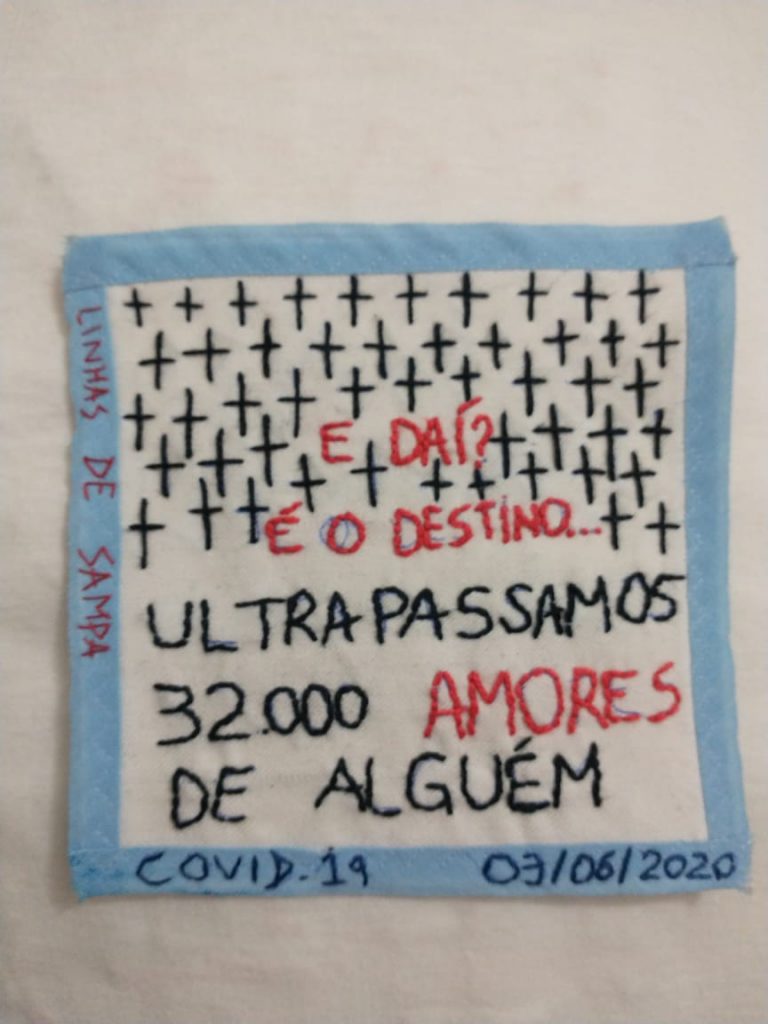 LINHAS DE SAMPA
E DAÍ?
É O DESTINO...
ULTRAPASSAMOS
32.000 AMORES
DE ALGUÉM
COVID.19 03/06/2020